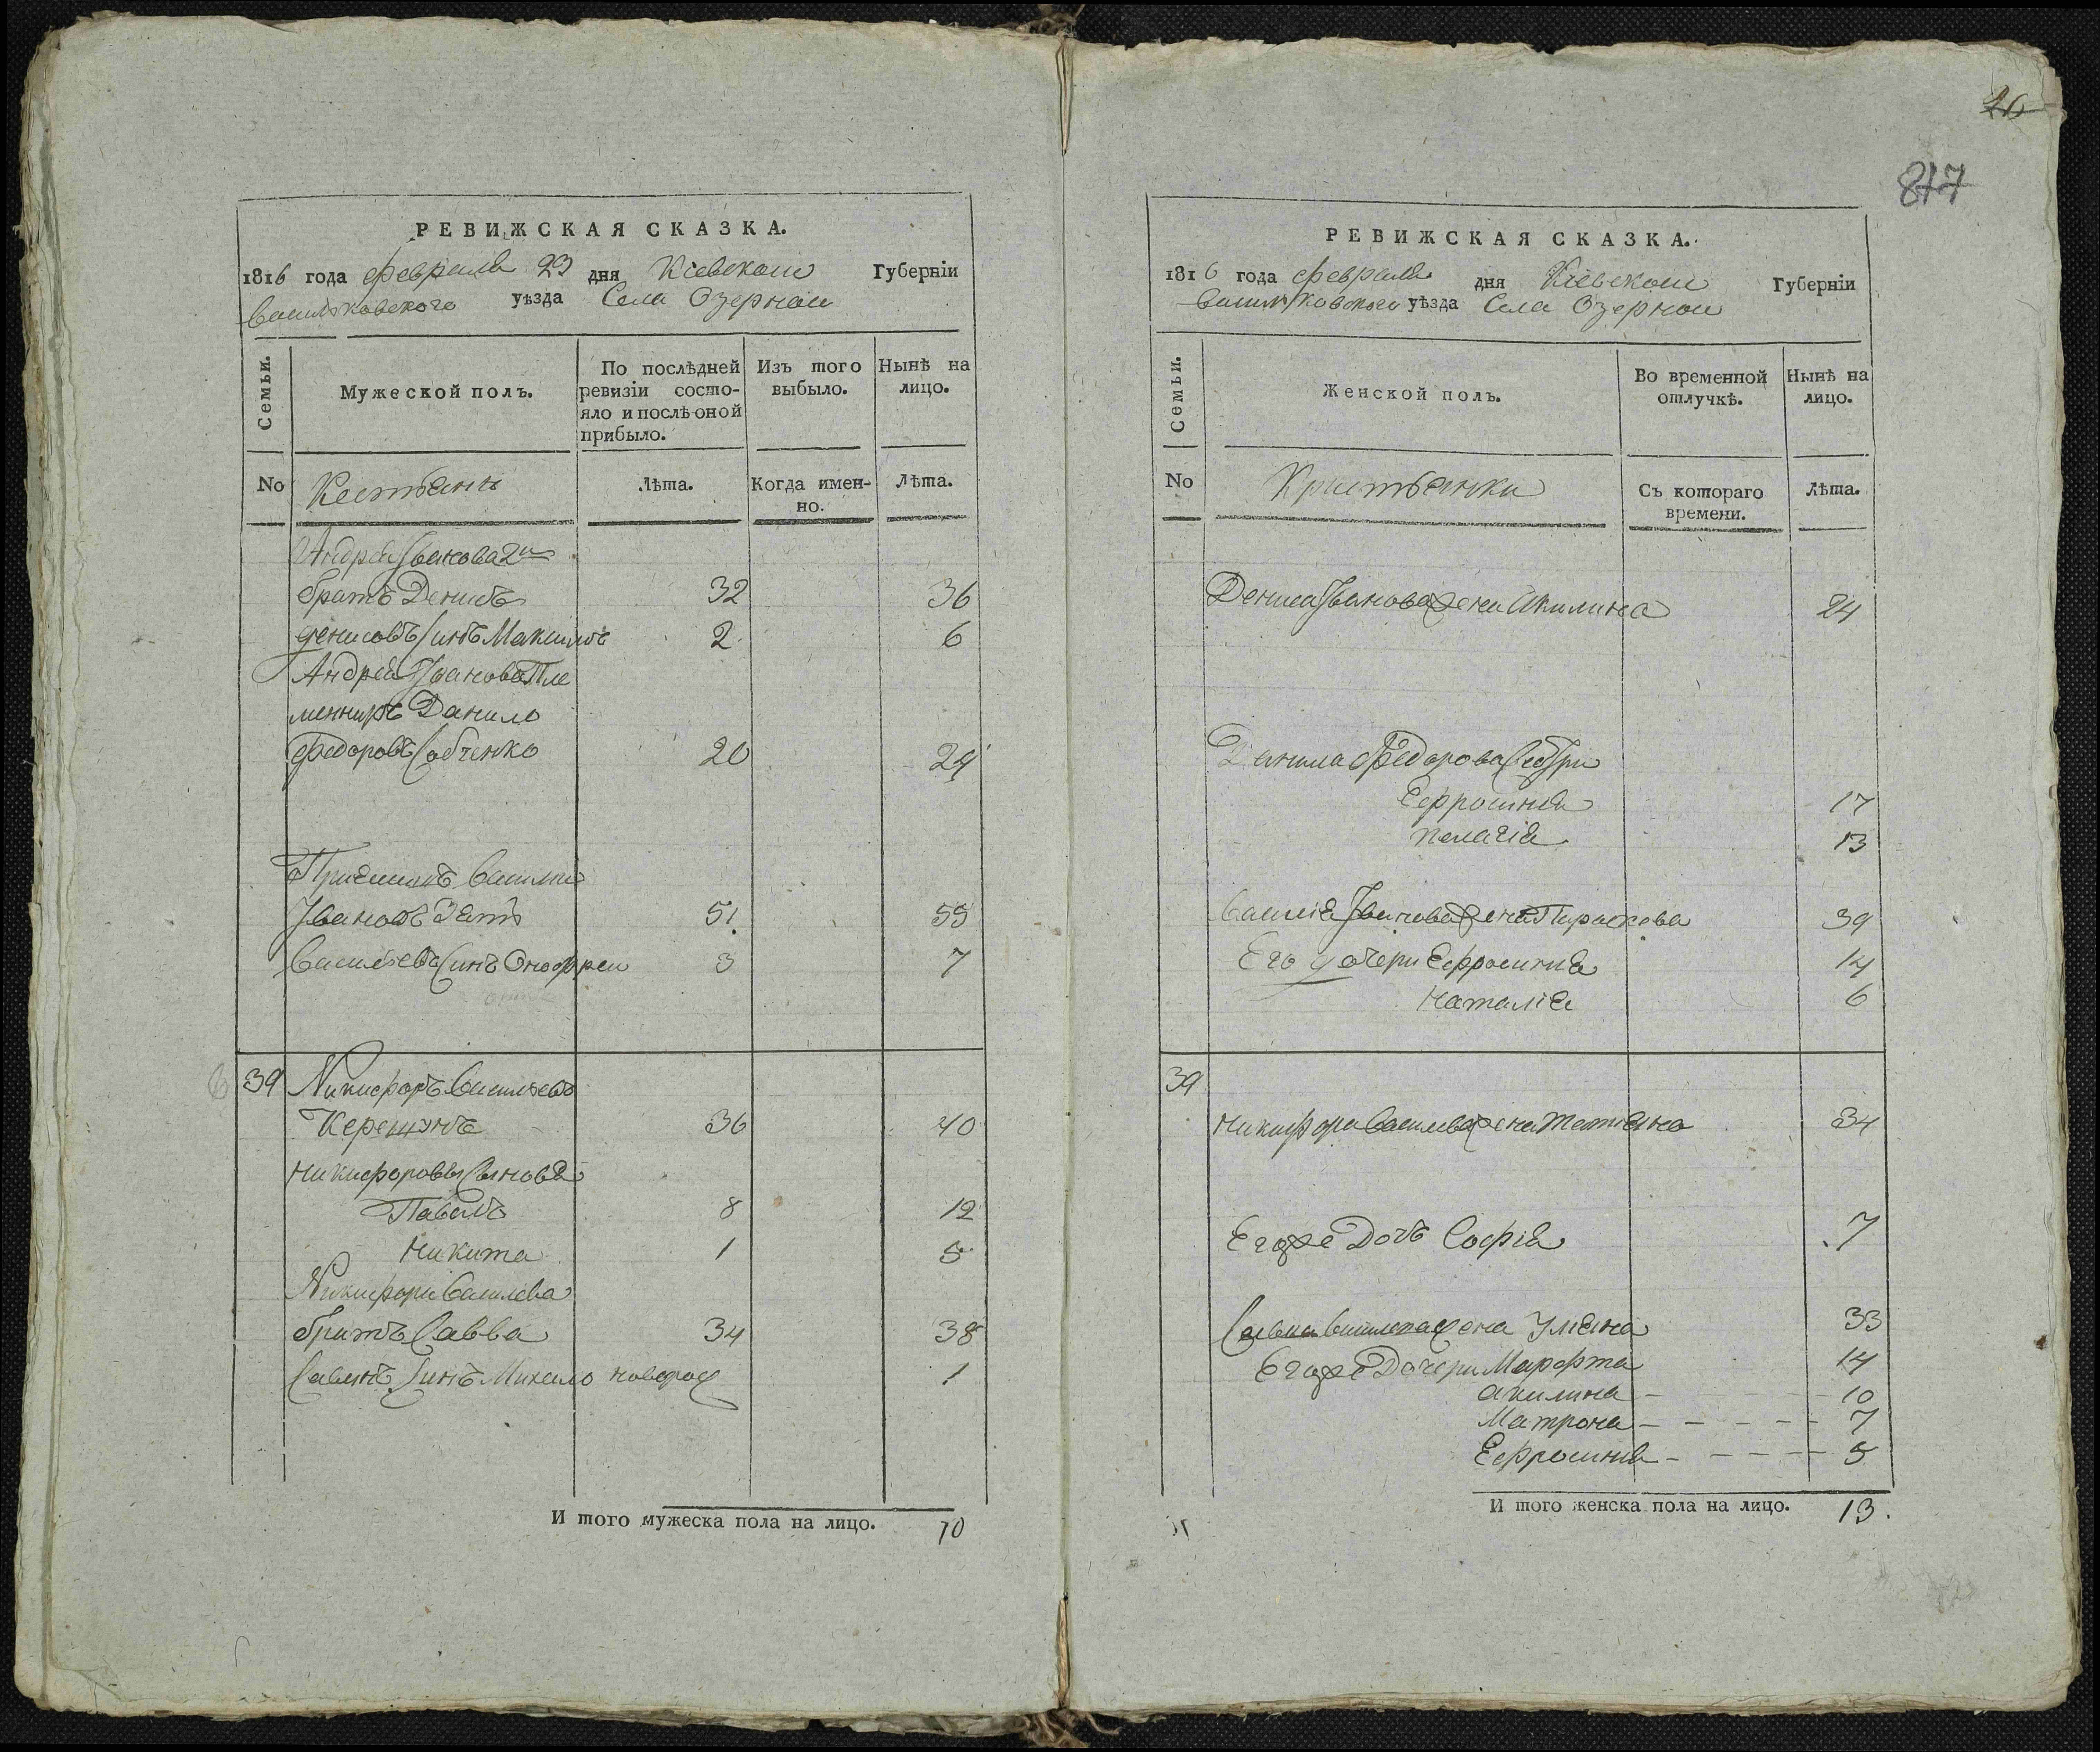 26
817
РЕВИЖСКАЯ СКАЗКА.
1816 года февраля 23 дня Кіевскои Губерніи
Василковского уѣзда Села Озернои
Семьи.
Мужеской полъ.
По послѣдней ревизіи состо-
яло и послѣ оной прибыло.
Изъ того выбыло.
Нынѣ на лицо.
No
Лѣта.
Когда имен-
но.
Лѣта.
Андрея Иванова 2й
братъ Денисъ 32 36
денисовъ синъ Максимъ 2 6
Андрея Иванова Пле
менникъ Данило
Федоровъ Собченко 20 24
Приемишъ Василии
Ивановъ Зять 51 55
Василіевъ синъ Онофреи 3 7
39 Никифоръ Василіевъ
Керешунъ 36 40
Никифоровы Сынове
Павелъ 8 12
Никита 1 5
Никифора Василева
братъ Савва 34 38
Савинъ синъ Михаило новорож 1
И того мужеска пола на лицо. 10
РЕВИЖСКАЯ СКАЗКА.
1816 года февраля дня Кіевскои Губерніи
Василковского уѣзда Села Озернои
Семьи.
Женской полъ.
Во временной отлучкѣ.
Нынѣ на лицо.
No
Кристьянки
Съ котораго времени.
Лѣта.
Дениса Иванова жена Акилина 24
Данила Федорова Сестри
Ефросиния 17
пелагія 13
Василія Иванова жена Параскева 39
Его дочери Ефросиния 14
Наталія 6
39
Никифора Василева жена Татіяна 34
Егоже Дочь Софія 7
Савки Василева жена Уліяна 33
Егоже Дочери Марфта 14
Акилина 10
Матрона 7
Ефросиния 5
И того женска пола на лицо. 13.